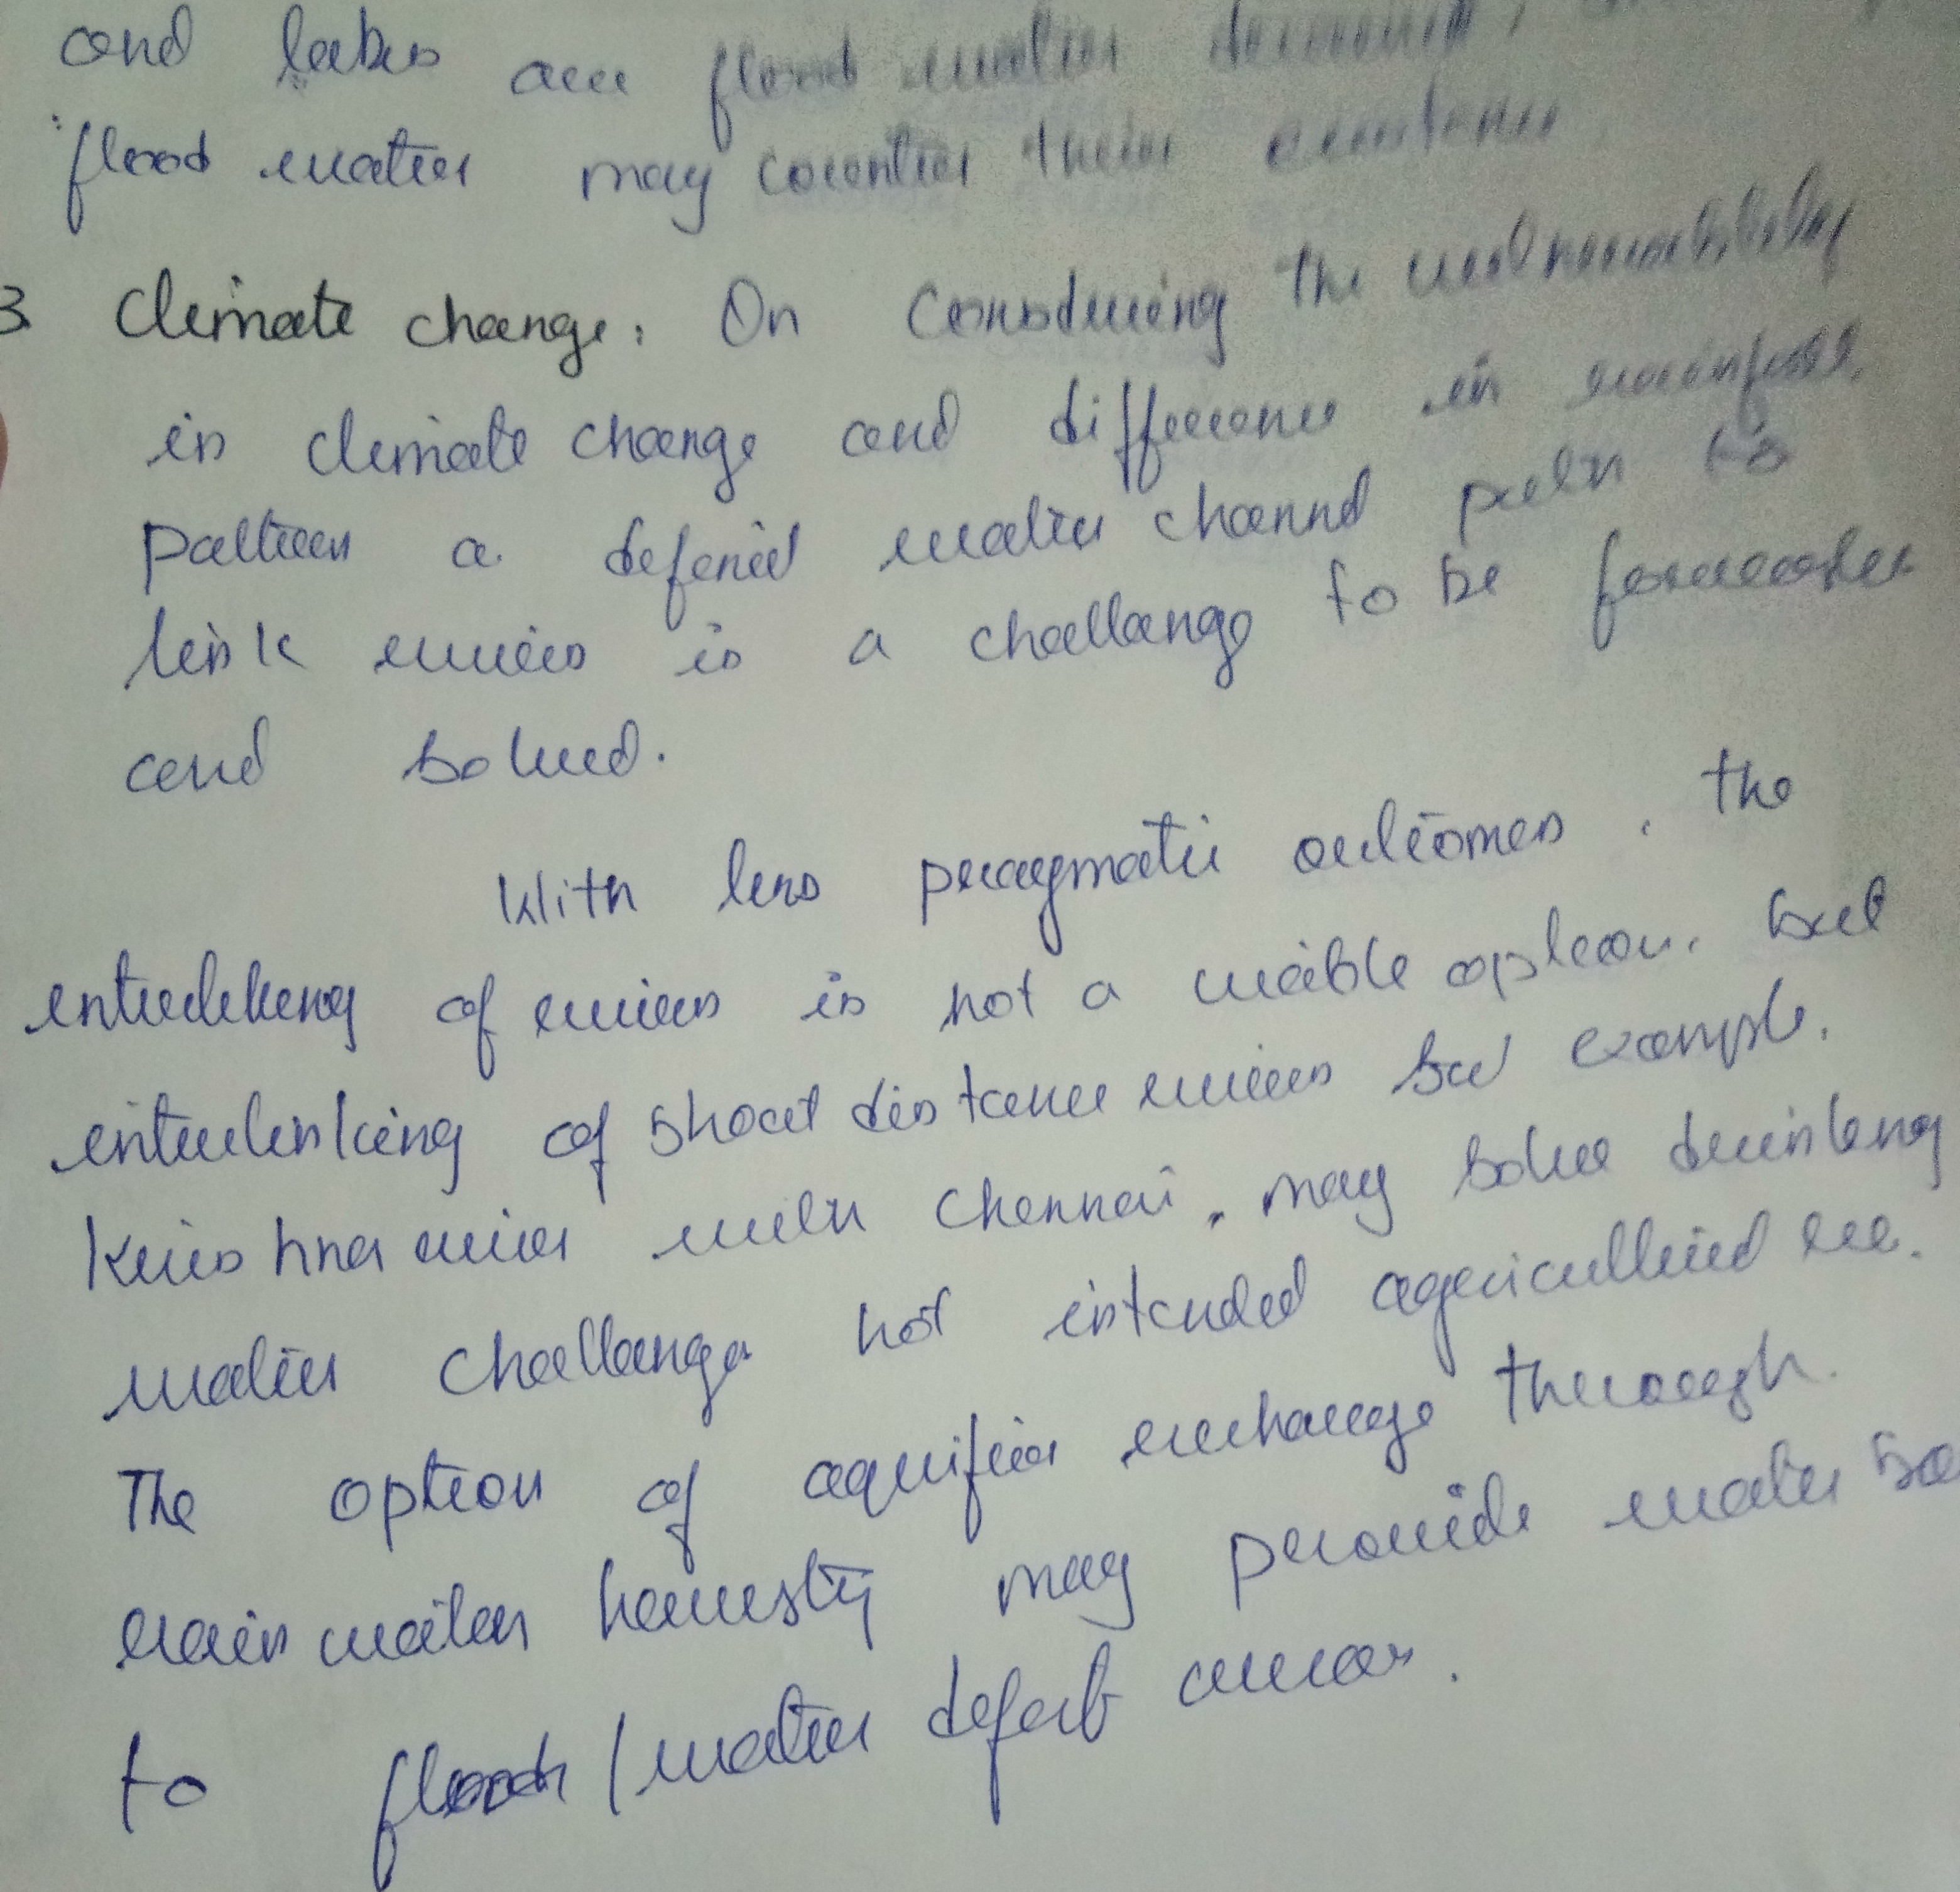 and lakes are flood water
flood water may counter their existence
3 Climate change: On considering the vulnerability
in climate change and difference in rainfall
pattern a defined water channel path to
link rivers is a challange to be
and solved.
With less pragmatic outcomes, the
interlinking of rivers is not a viable option. but
interlinking of short distance rivers for example.
Krishna river with Chennai, may solve drinking
water challange not intended agricultural use.
The option of aquifier recharge through.
rain water harvesty may provide water
to flood / water deficit areas.